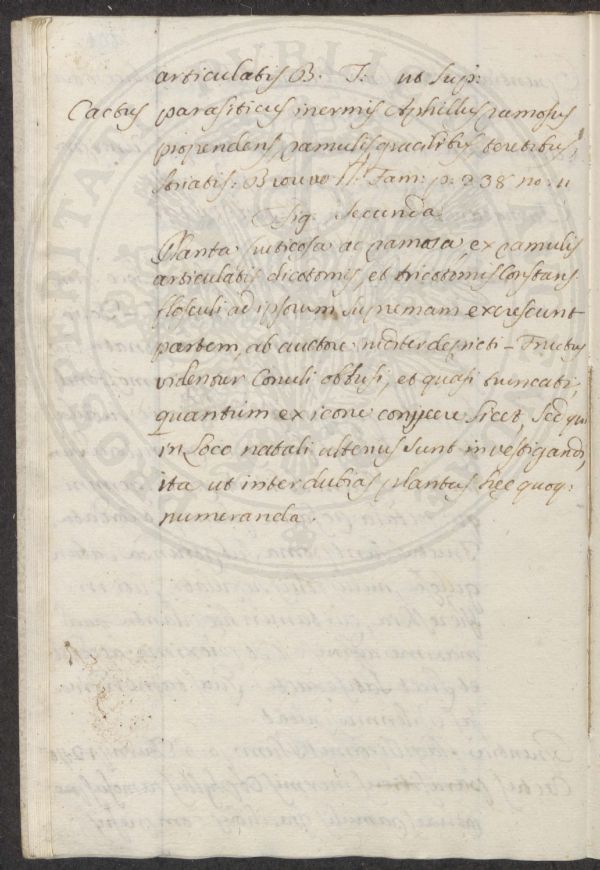 articulatis B. J. ut sup:
Cactus parasiticus inermis Aphillus ramosus
propendens, ramulis gracilibus teretibus,
striatis: Brouwo H. Jam: p: 238 no: 11
Fig. Secunda.
Planta fruticosa ac ramosa, ex ramulis
articulatis dicotomis, et tricotomis Constans
flosculi ad ipsorum supremam excrescunt
partem, ab auctore nuditer depicti - Fructus
videntur Conuli obtusi, et quasi truncati,
quantum ex icone conijcere licet, Sed qui
in Loco natali ulterius sunt investigandi,
ita ut inter dubias plantas hęc quoq:
numeranda.